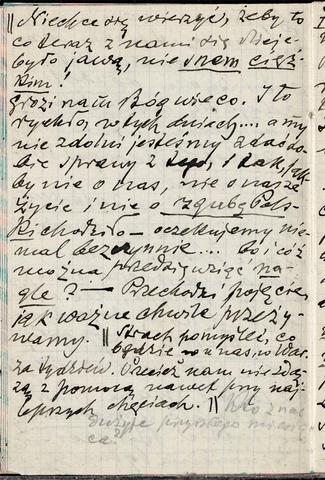 || Nie chce się wierzyć, żeby to
co teraz z nami się dzieje
było jawą, nie snem cięż-
kim!
grozi nam Bóg wie co. I to
rychło, w tych dniach.... a my
nie zdolni jesteśmy zdać so-
bie sprawy z tego, i tak, jak
by nie o nas, nie o nasze
życie i nie o zgubę Pols-
ki chodziło – oczekujemy nie-
mal bezczynnie.... bo i cóż
można przedsięwziąć na-
gle? – Przechodzi pojęcie,
jak ważne chwile przeży-
wamy. || Strach pomyśleć, co
będzie u nas, w War.
za tydzień. Przecież nam nie zdą-
żą z pomocą nawet przy naj-
lepszych chęciach. || Kto z nas
dożyje przyszłego miesią-
ca?